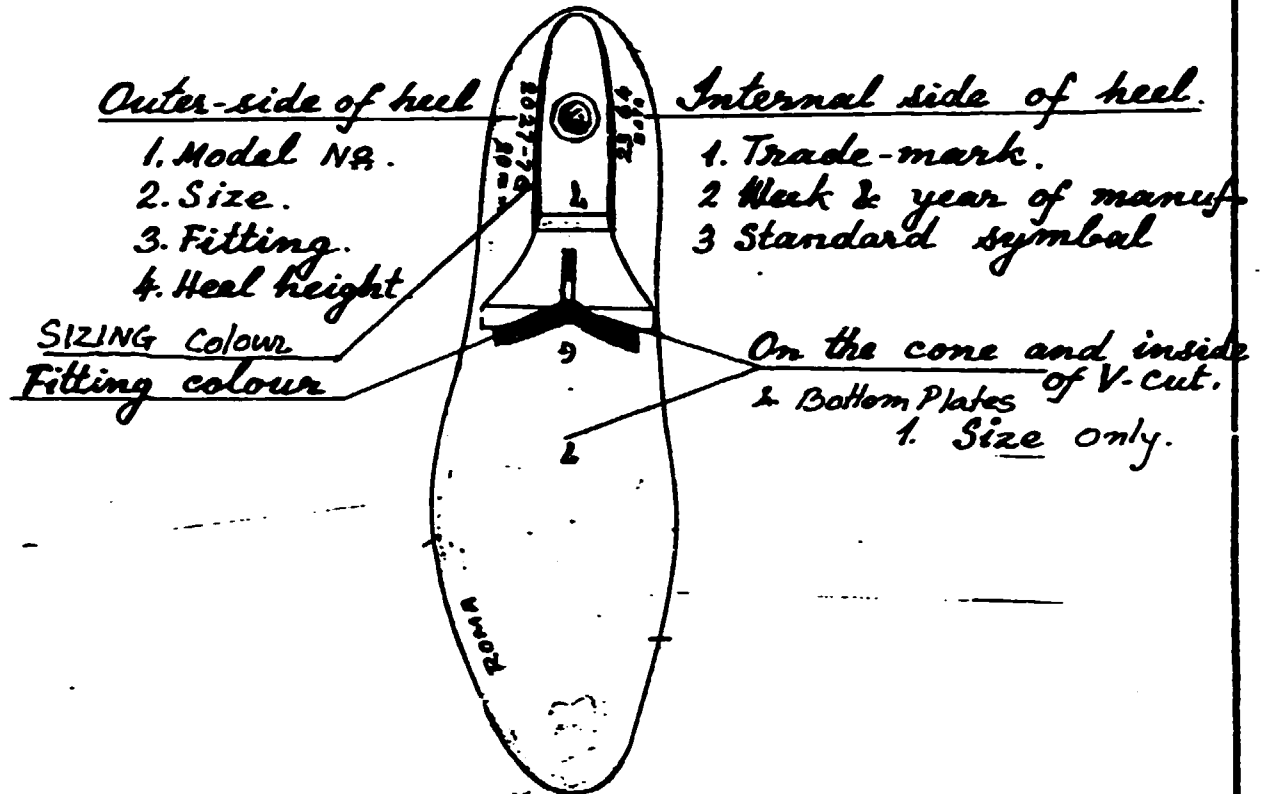 Outer-side of heel
1. Model NR.
2. Size.
3. Fitting.
4. Heel height.
SIZING Colour
Fitting colour
Internal side of heel.
1. Trade-mark.
2 Week & year of manuf.
3 Standard symbal
On the cone and inside
of V-cut.
& Bottom Plates
1. Size only.
2027-76
20mm
7
G
7
ROMA